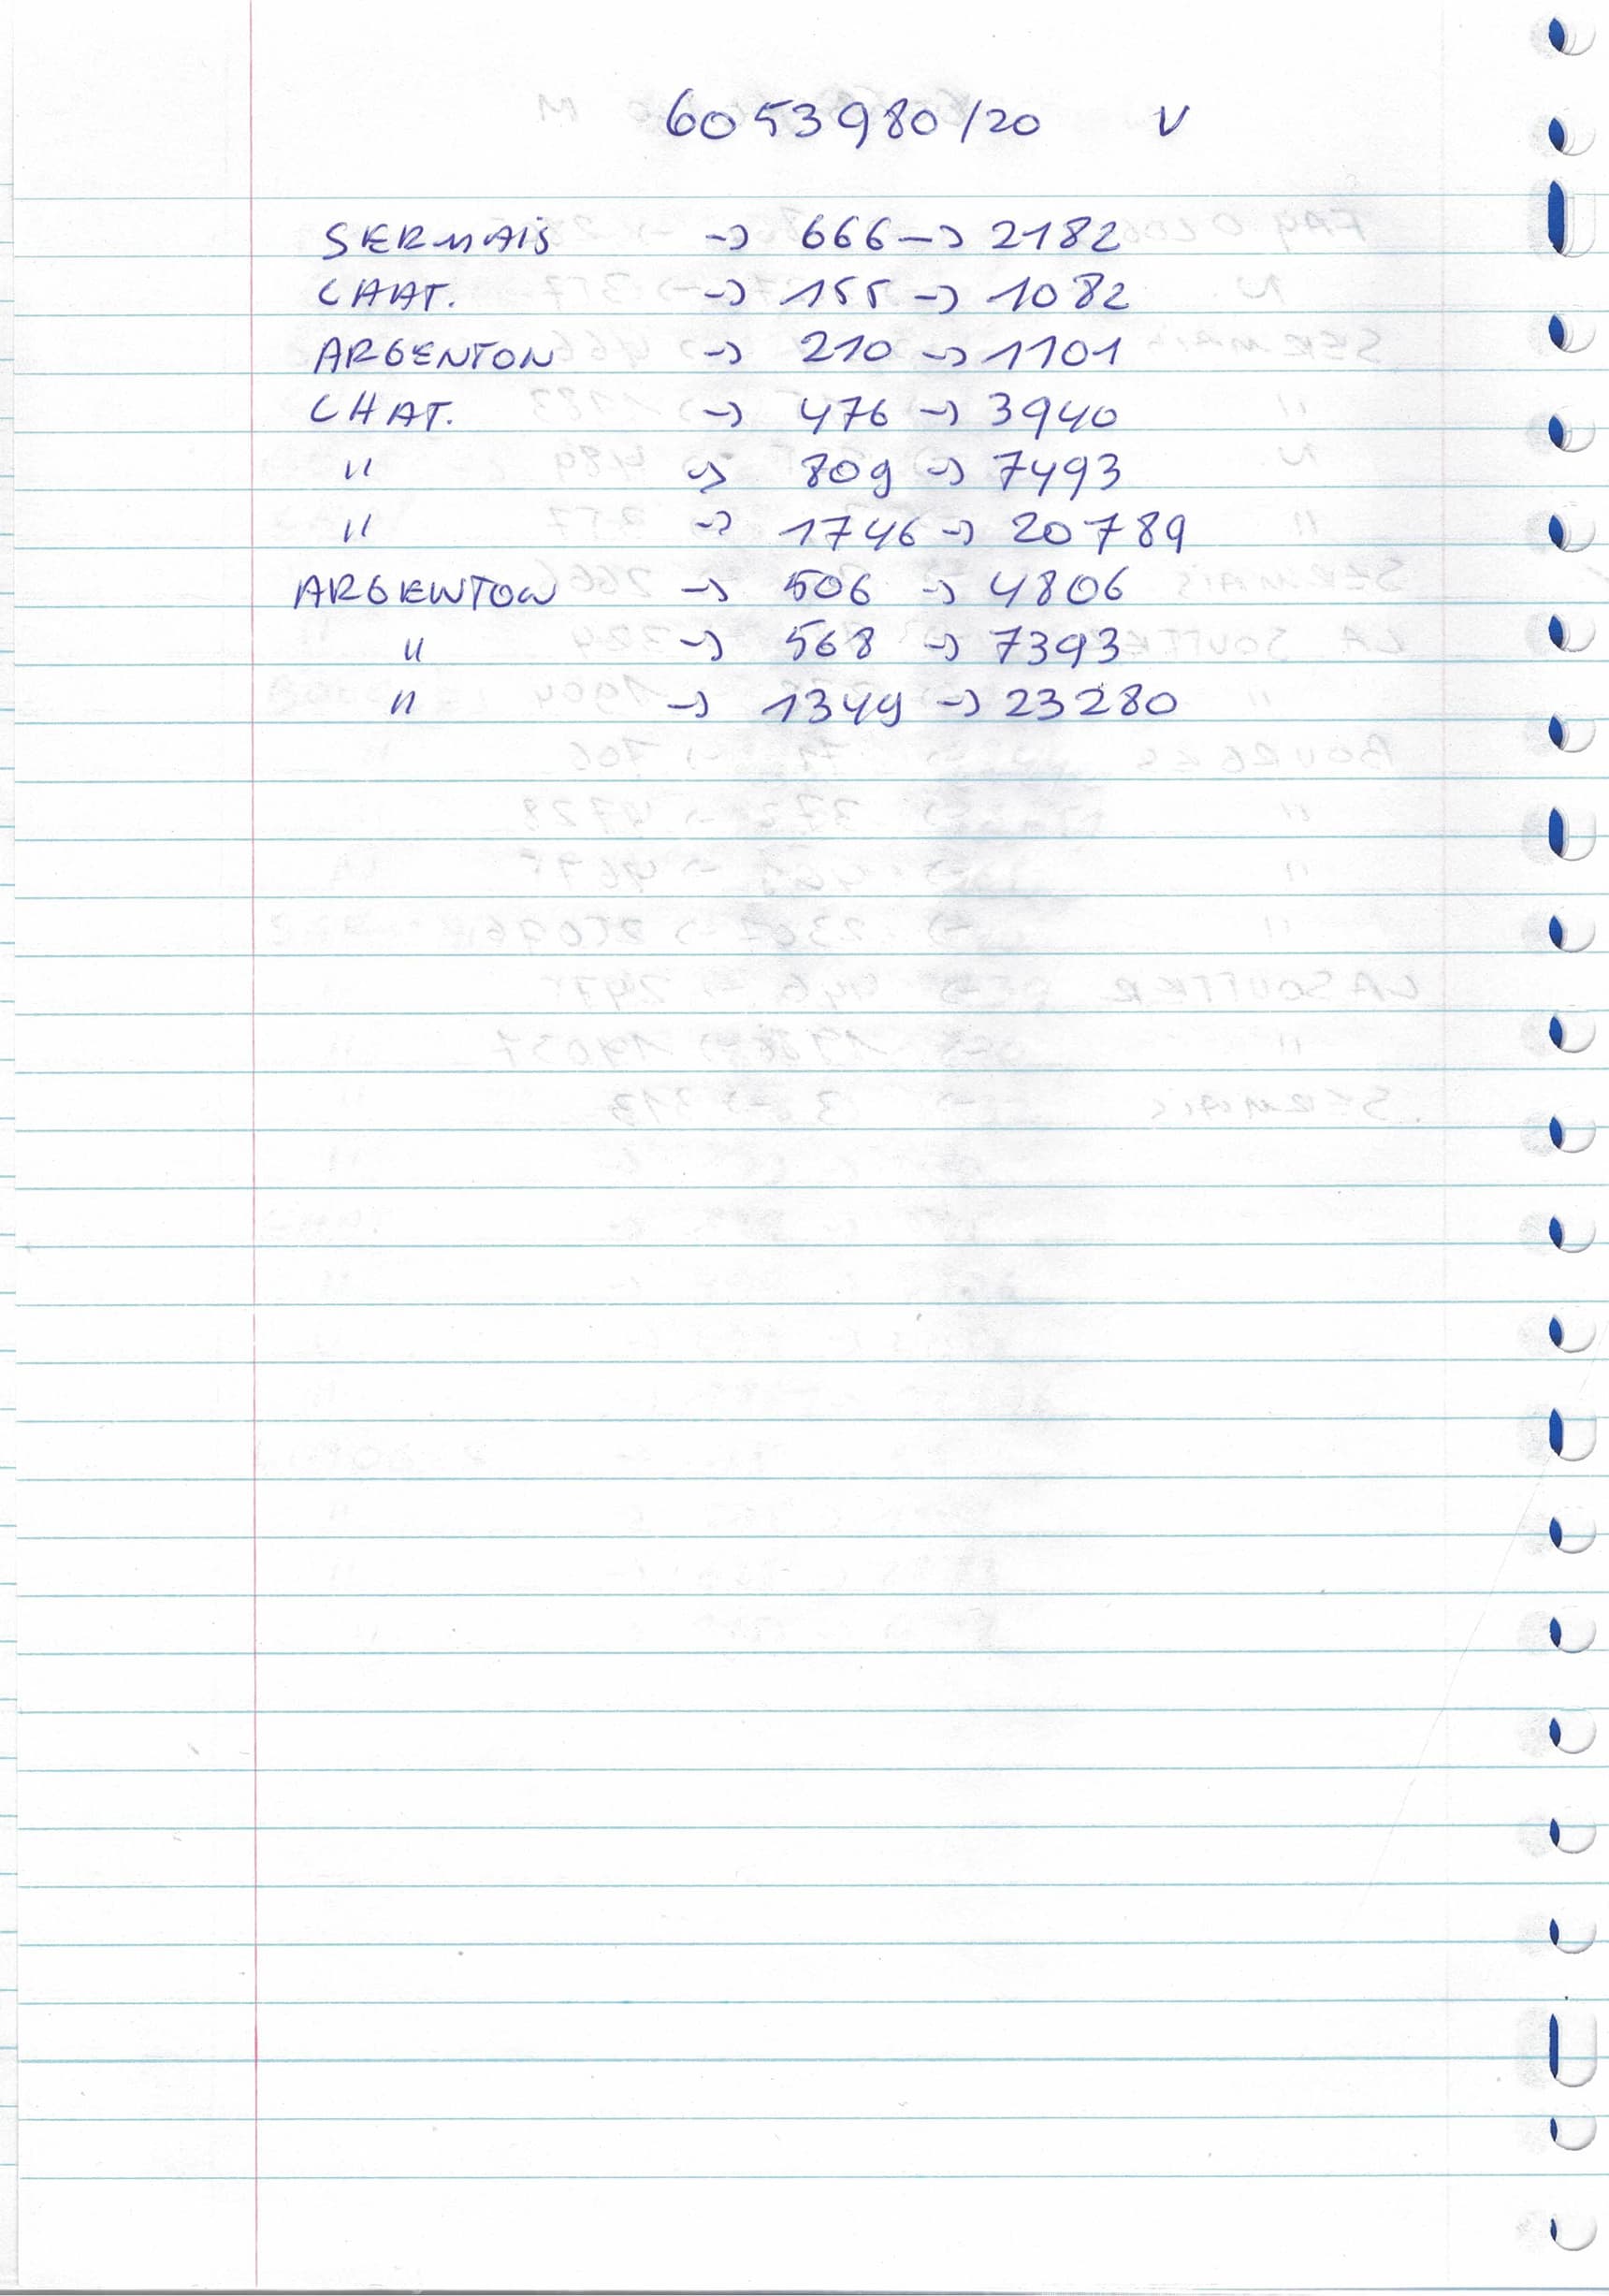 6053980/20 V
SERMAIS -> 666 -> 2182
CHAT. -> 155 -> 1082
ARGENTON -> 210 -> 1101
CHAT. -> 476 -> 3940
" -> 809 -> 7493
" -> 1746 -> 20789
ARGENTON -> 506 -> 4806
" -> 568 -> 7393
" -> 1349 -> 23280